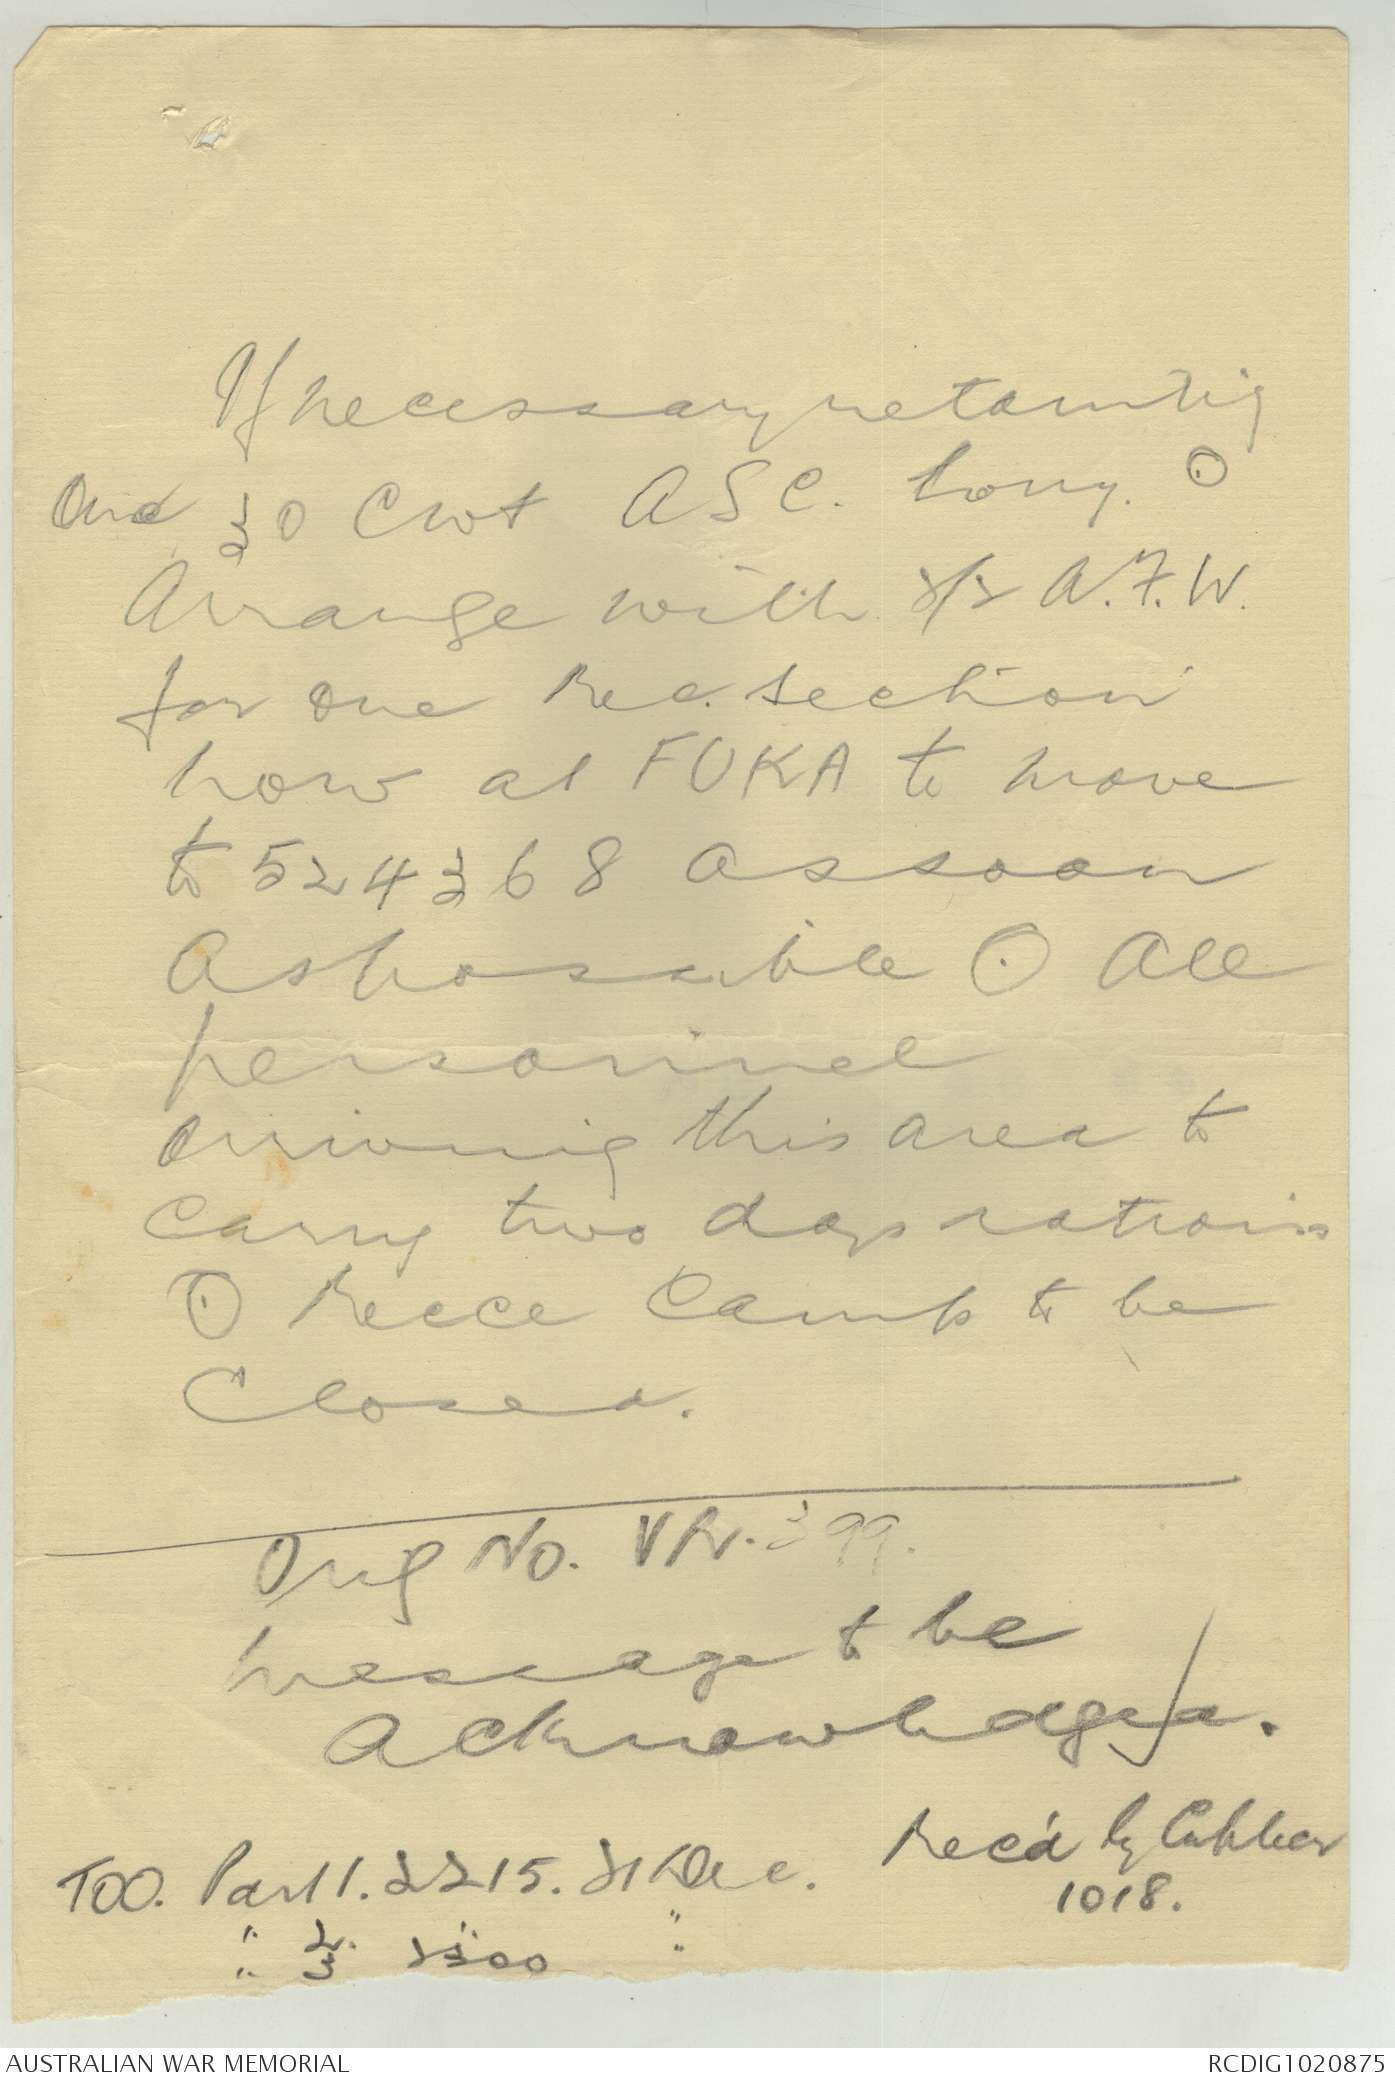 If necessary retaining
One 30 Cwt ASC. Lorry. ⊙
Arrange with 2/2 A.F.W.
for one Rec. Section
now at FUKA to move
to 524368 as soon
As possible ⊙ All
personnel
arriving this area to
carry two days rations
⊙ Recce Camp to be
Closed.
Orig No. VR. 399.
message to be
Acknowledged.
Rec'd by Cable
1018.
TOO. Part 1. 2215. 21 Dec.
" 2. "
" 3 2300 "
AUSTRALIAN WAR MEMORIAL
RCDIG1020875